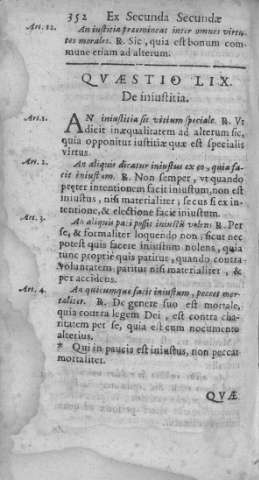 352 Ex Secunda Secundæ
Art. 12. An iustitia præemineat inter omnes virtu
tes morales. R. Sic, quia est bonum com
mune etiam ad alterum.
QVÆSTIO LIX.
De iniustitia.
Art. 1. AN iniustitia sit vitium speciale. R. Vt
dicit inæqualitatem ad alterum sic,
quia opponitur iustitiæ quæ est specialis
virtus.
Art. 2. An aliquis dicatur iniustus ex eo, quia fa-
cit iniustum. R. Non semper, vt quando
præter intentionem facit iniustum, non est
iniustus, nisi materialiter; secus si ex in-
tentione, & electione facit iniustum.
Art. 3. An aliquis pati possit iniustū volens R. Per
se, & formaliter loquendo non, sicut nec
potest quis facere iniustum nolens, quia
tunc proprie quis patitur, quando contra
voluntatem patitur nisi materialiter, &
per accidens.
Art. 4. An quicumque facit iniustum, peccet mor-
taliter. R. De genere suo est mortale,
quia contra legem Dei, est contra cha-
ritatem per se, quia est cum nocumento
alterius.
* Qui in paucis est iniustus, non peccat
mortaliter.
QVÆ